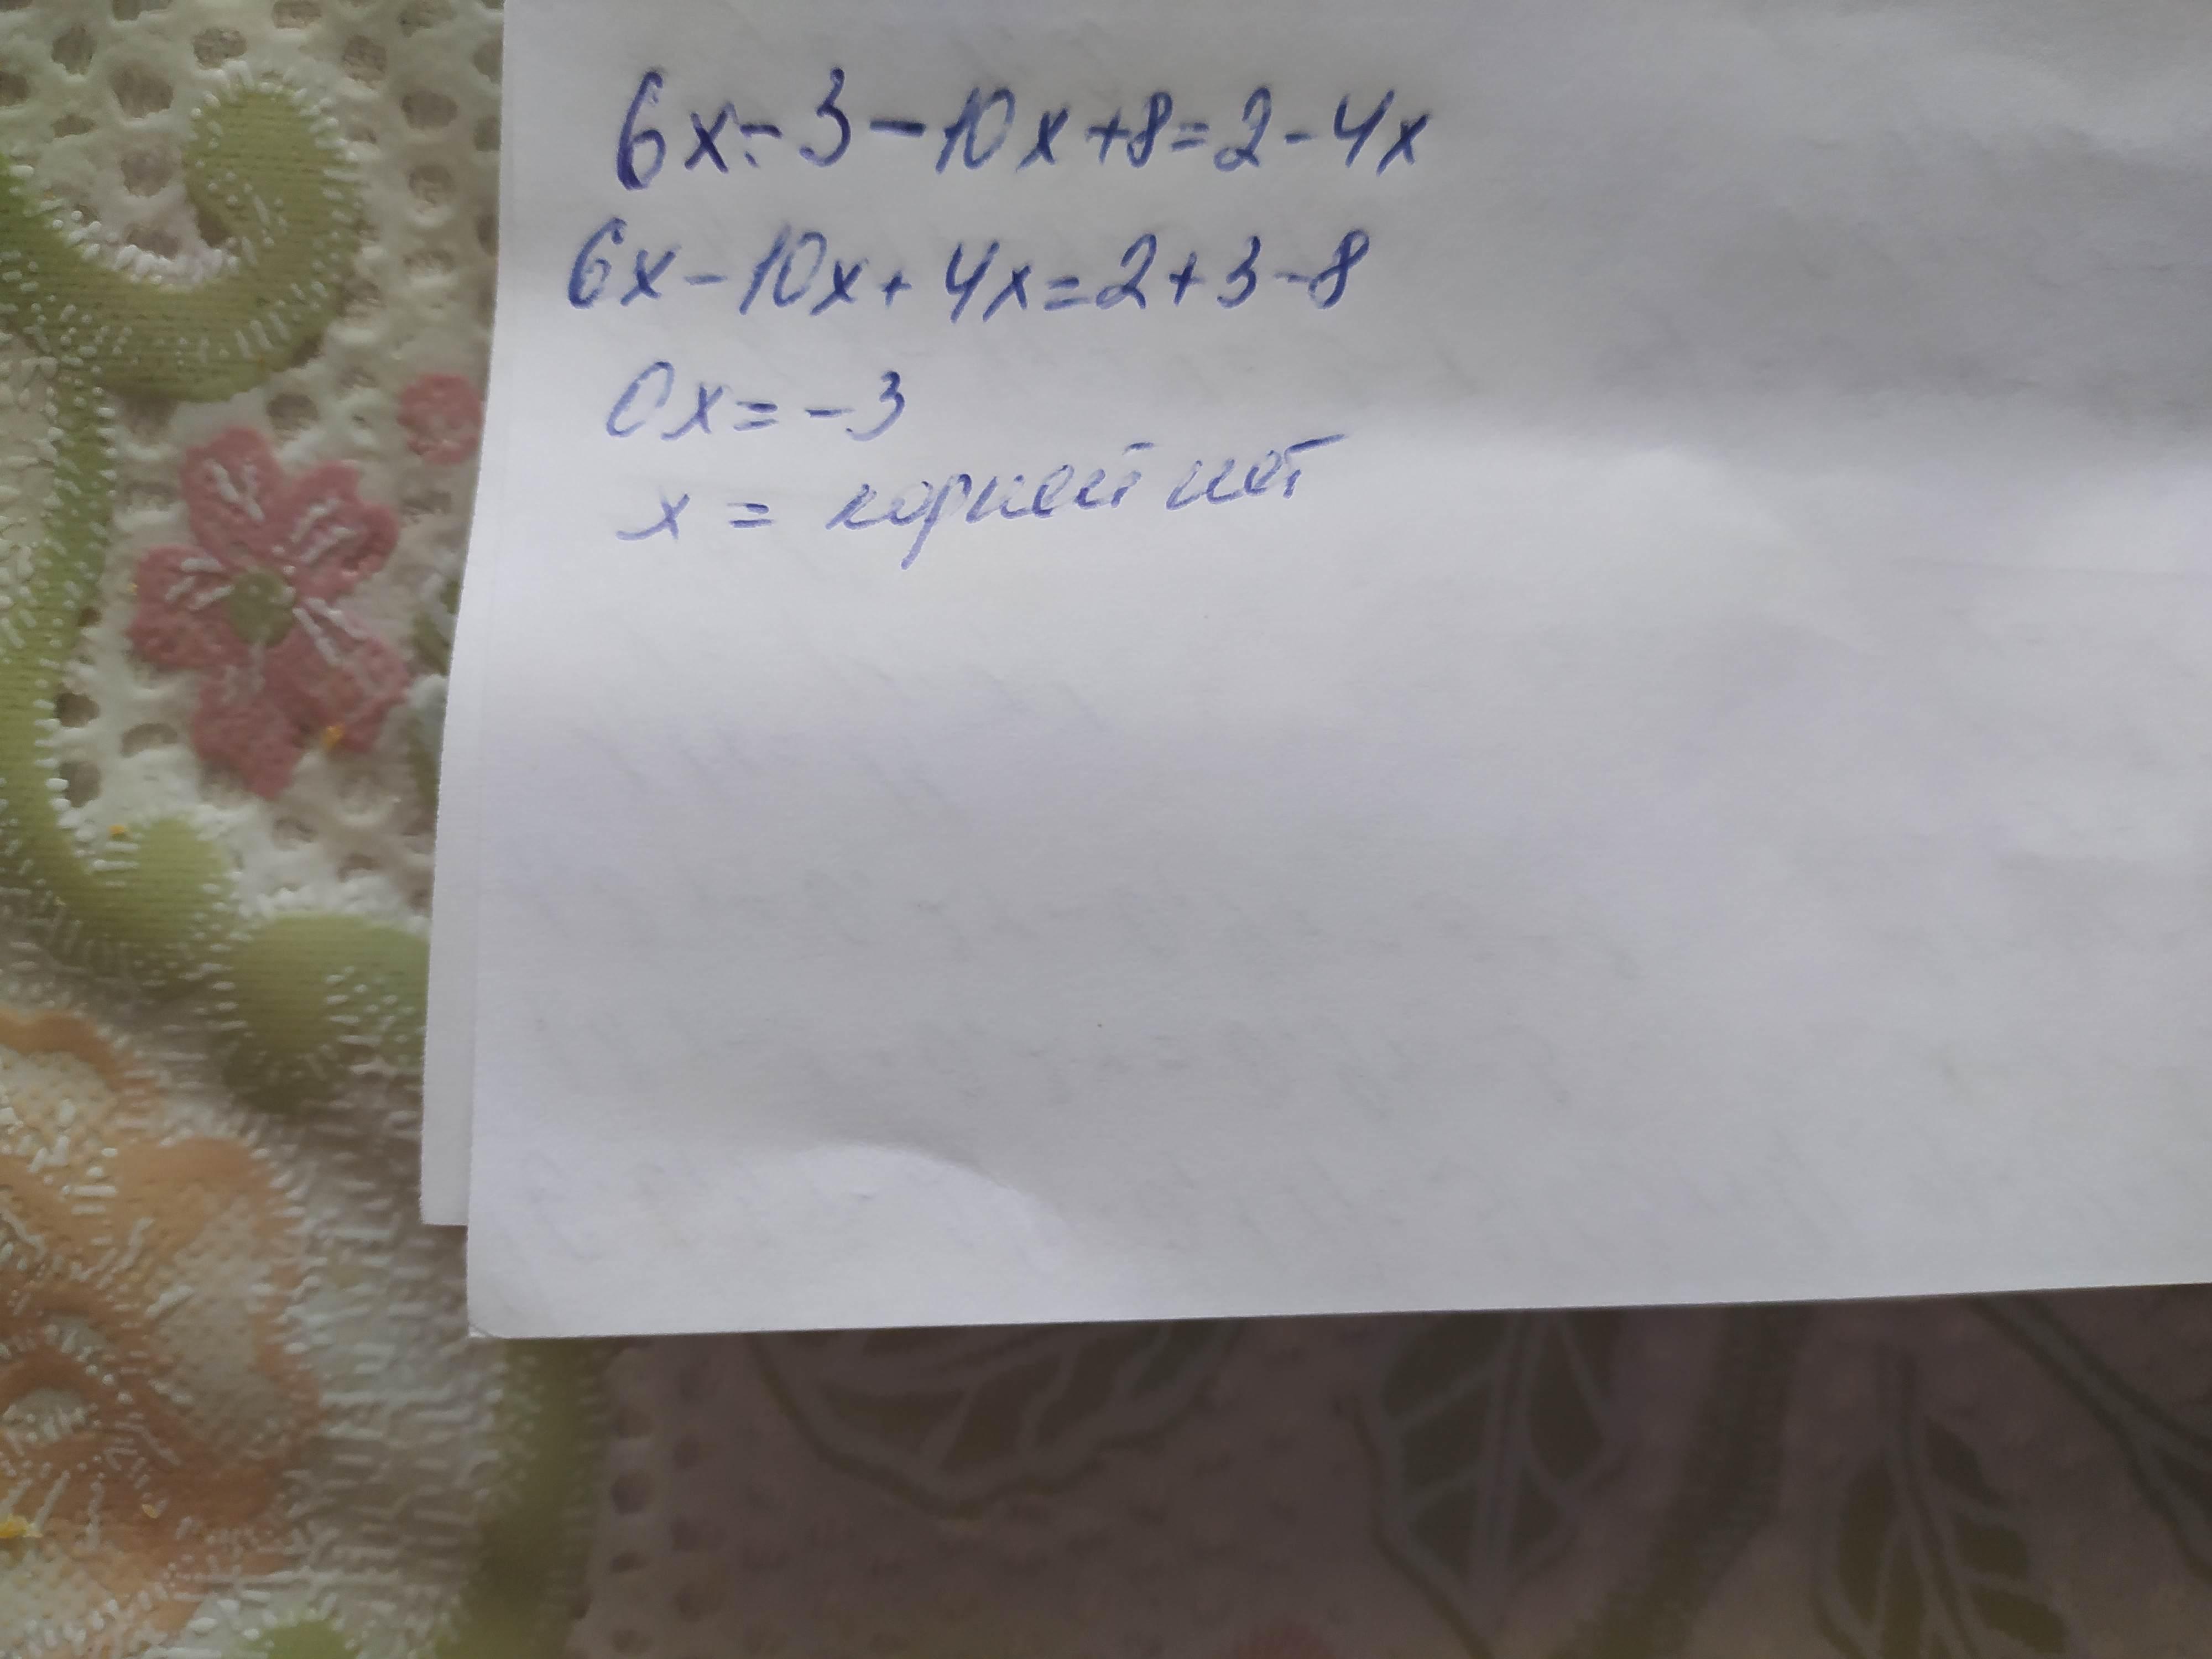 6x-3-10x+8=2-4x
6x-10x+4x=2+3-8
0x=-3
x = корней нет